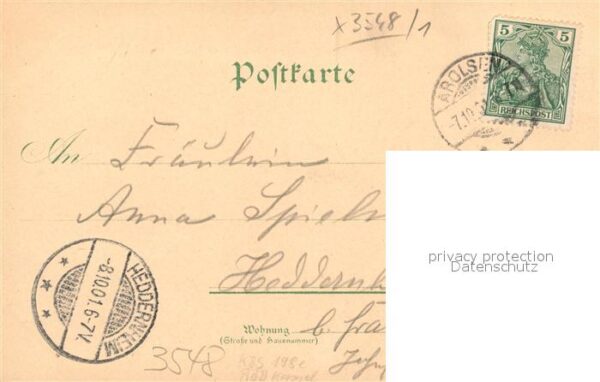 x3548/1
5 5
REICHSPOST
AROLSEN
-7.10.
Postkarte
An Fräulein
Anna Spiel
privacy protection
Datenschutz
Heddernh
HEDDERNHEIM
-8.10.01.6-7V.
Wohnung
(Straße und Hausnummer)
b. Fra
3548